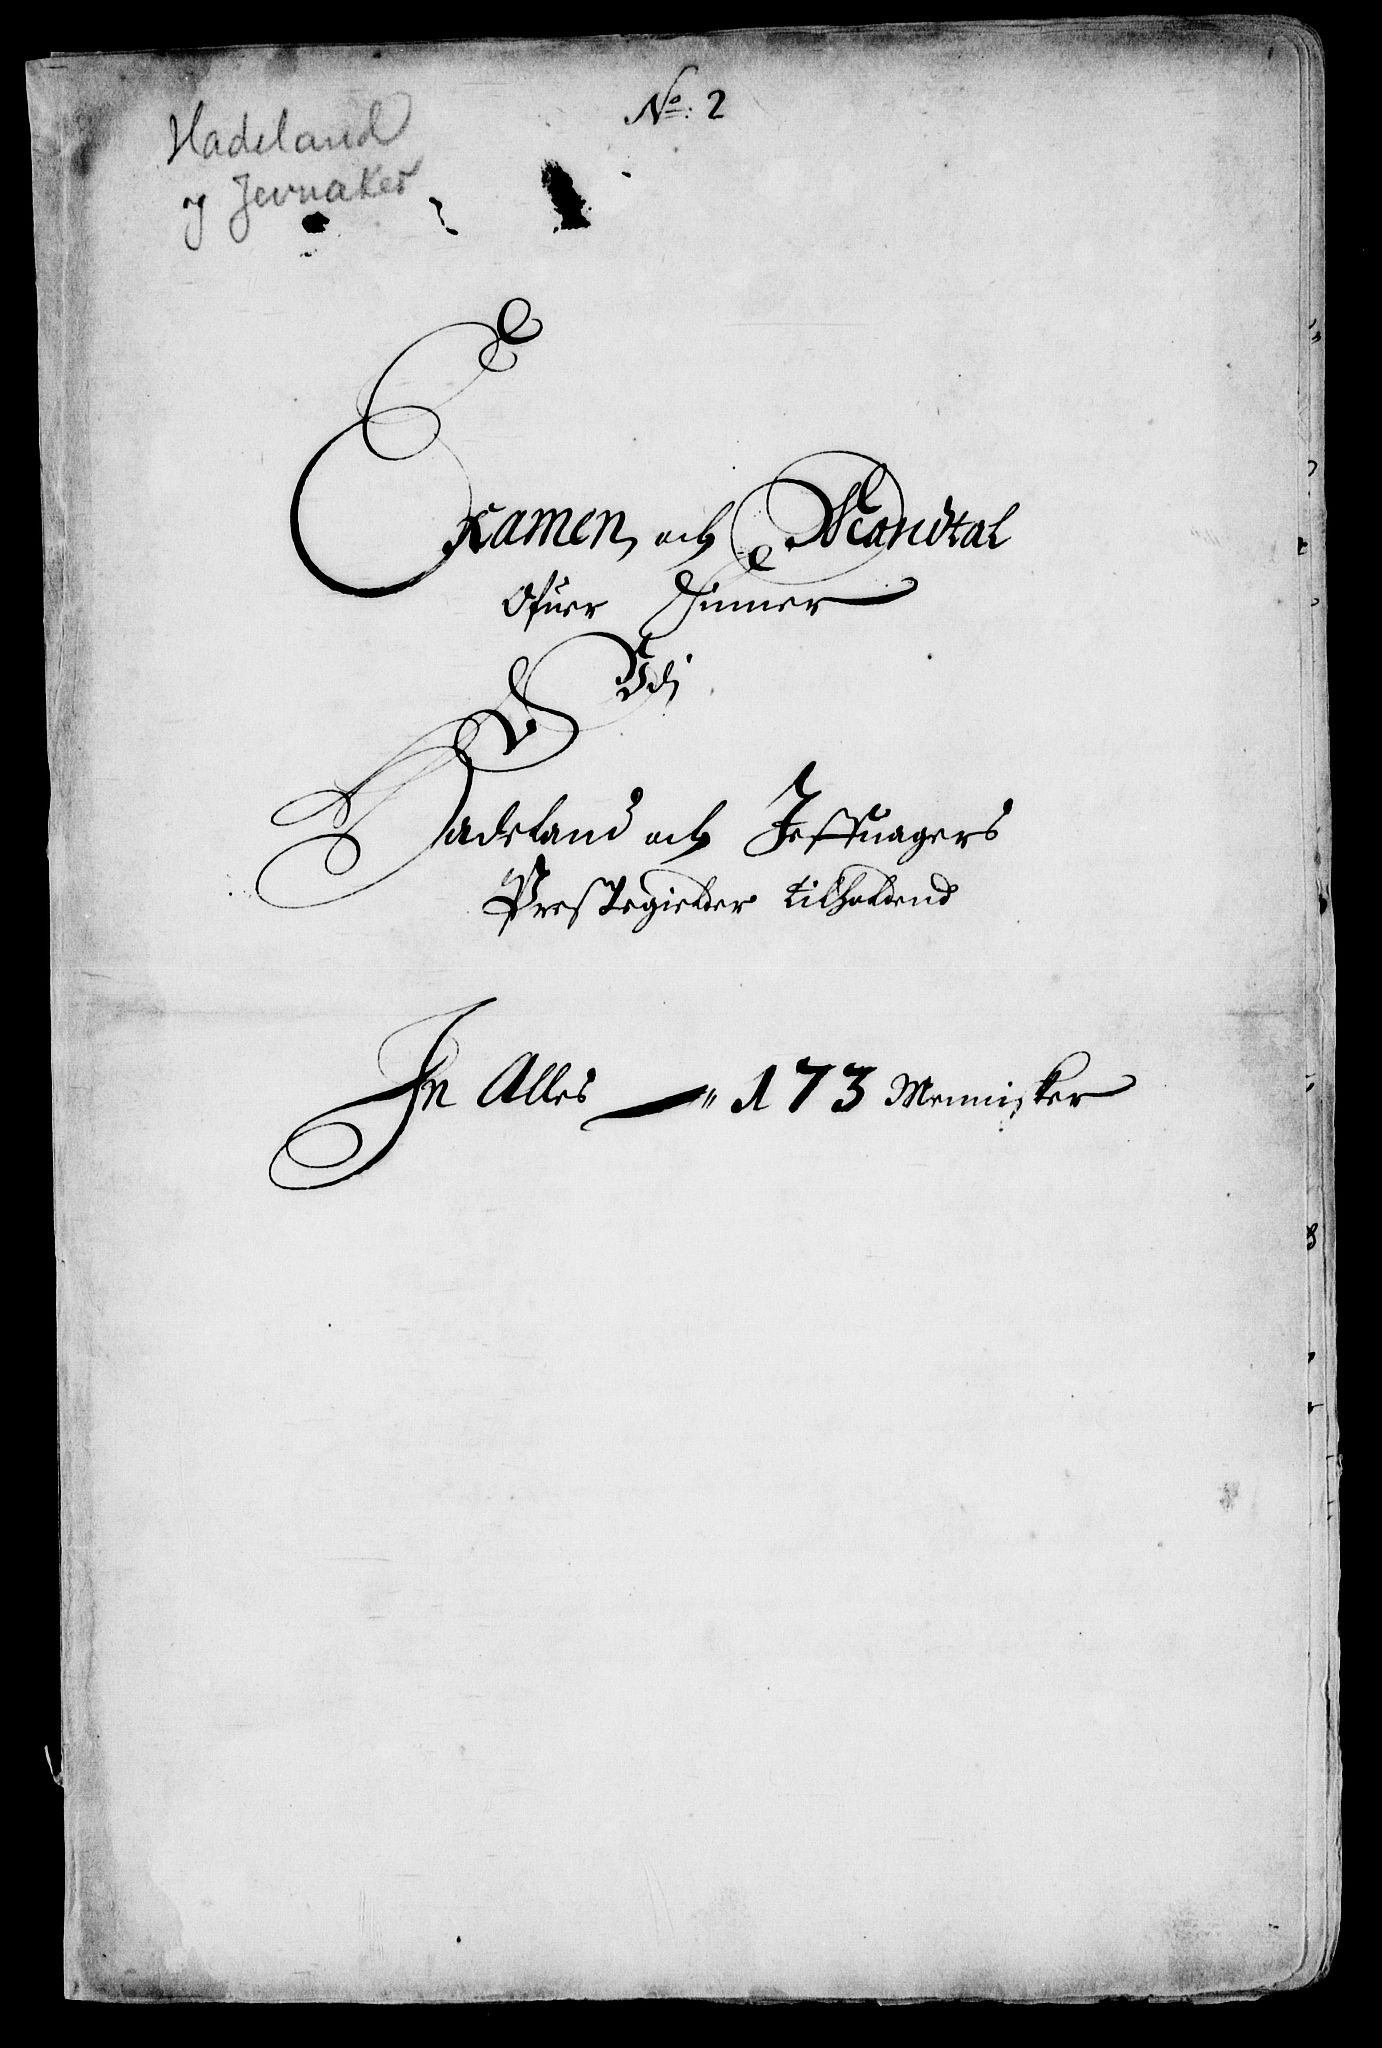 No: 2
Hadeland
og Jevnaker
Examen, och Mandtal
Ofuer Finner
Udj
Hadeland och Jeffnagers
Prestegielder tilholdend
In Alles 173 Mennisker